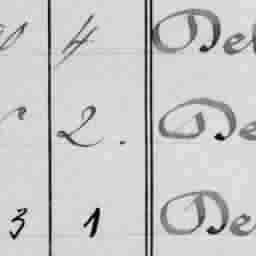 4 De
2. De
3 1 De